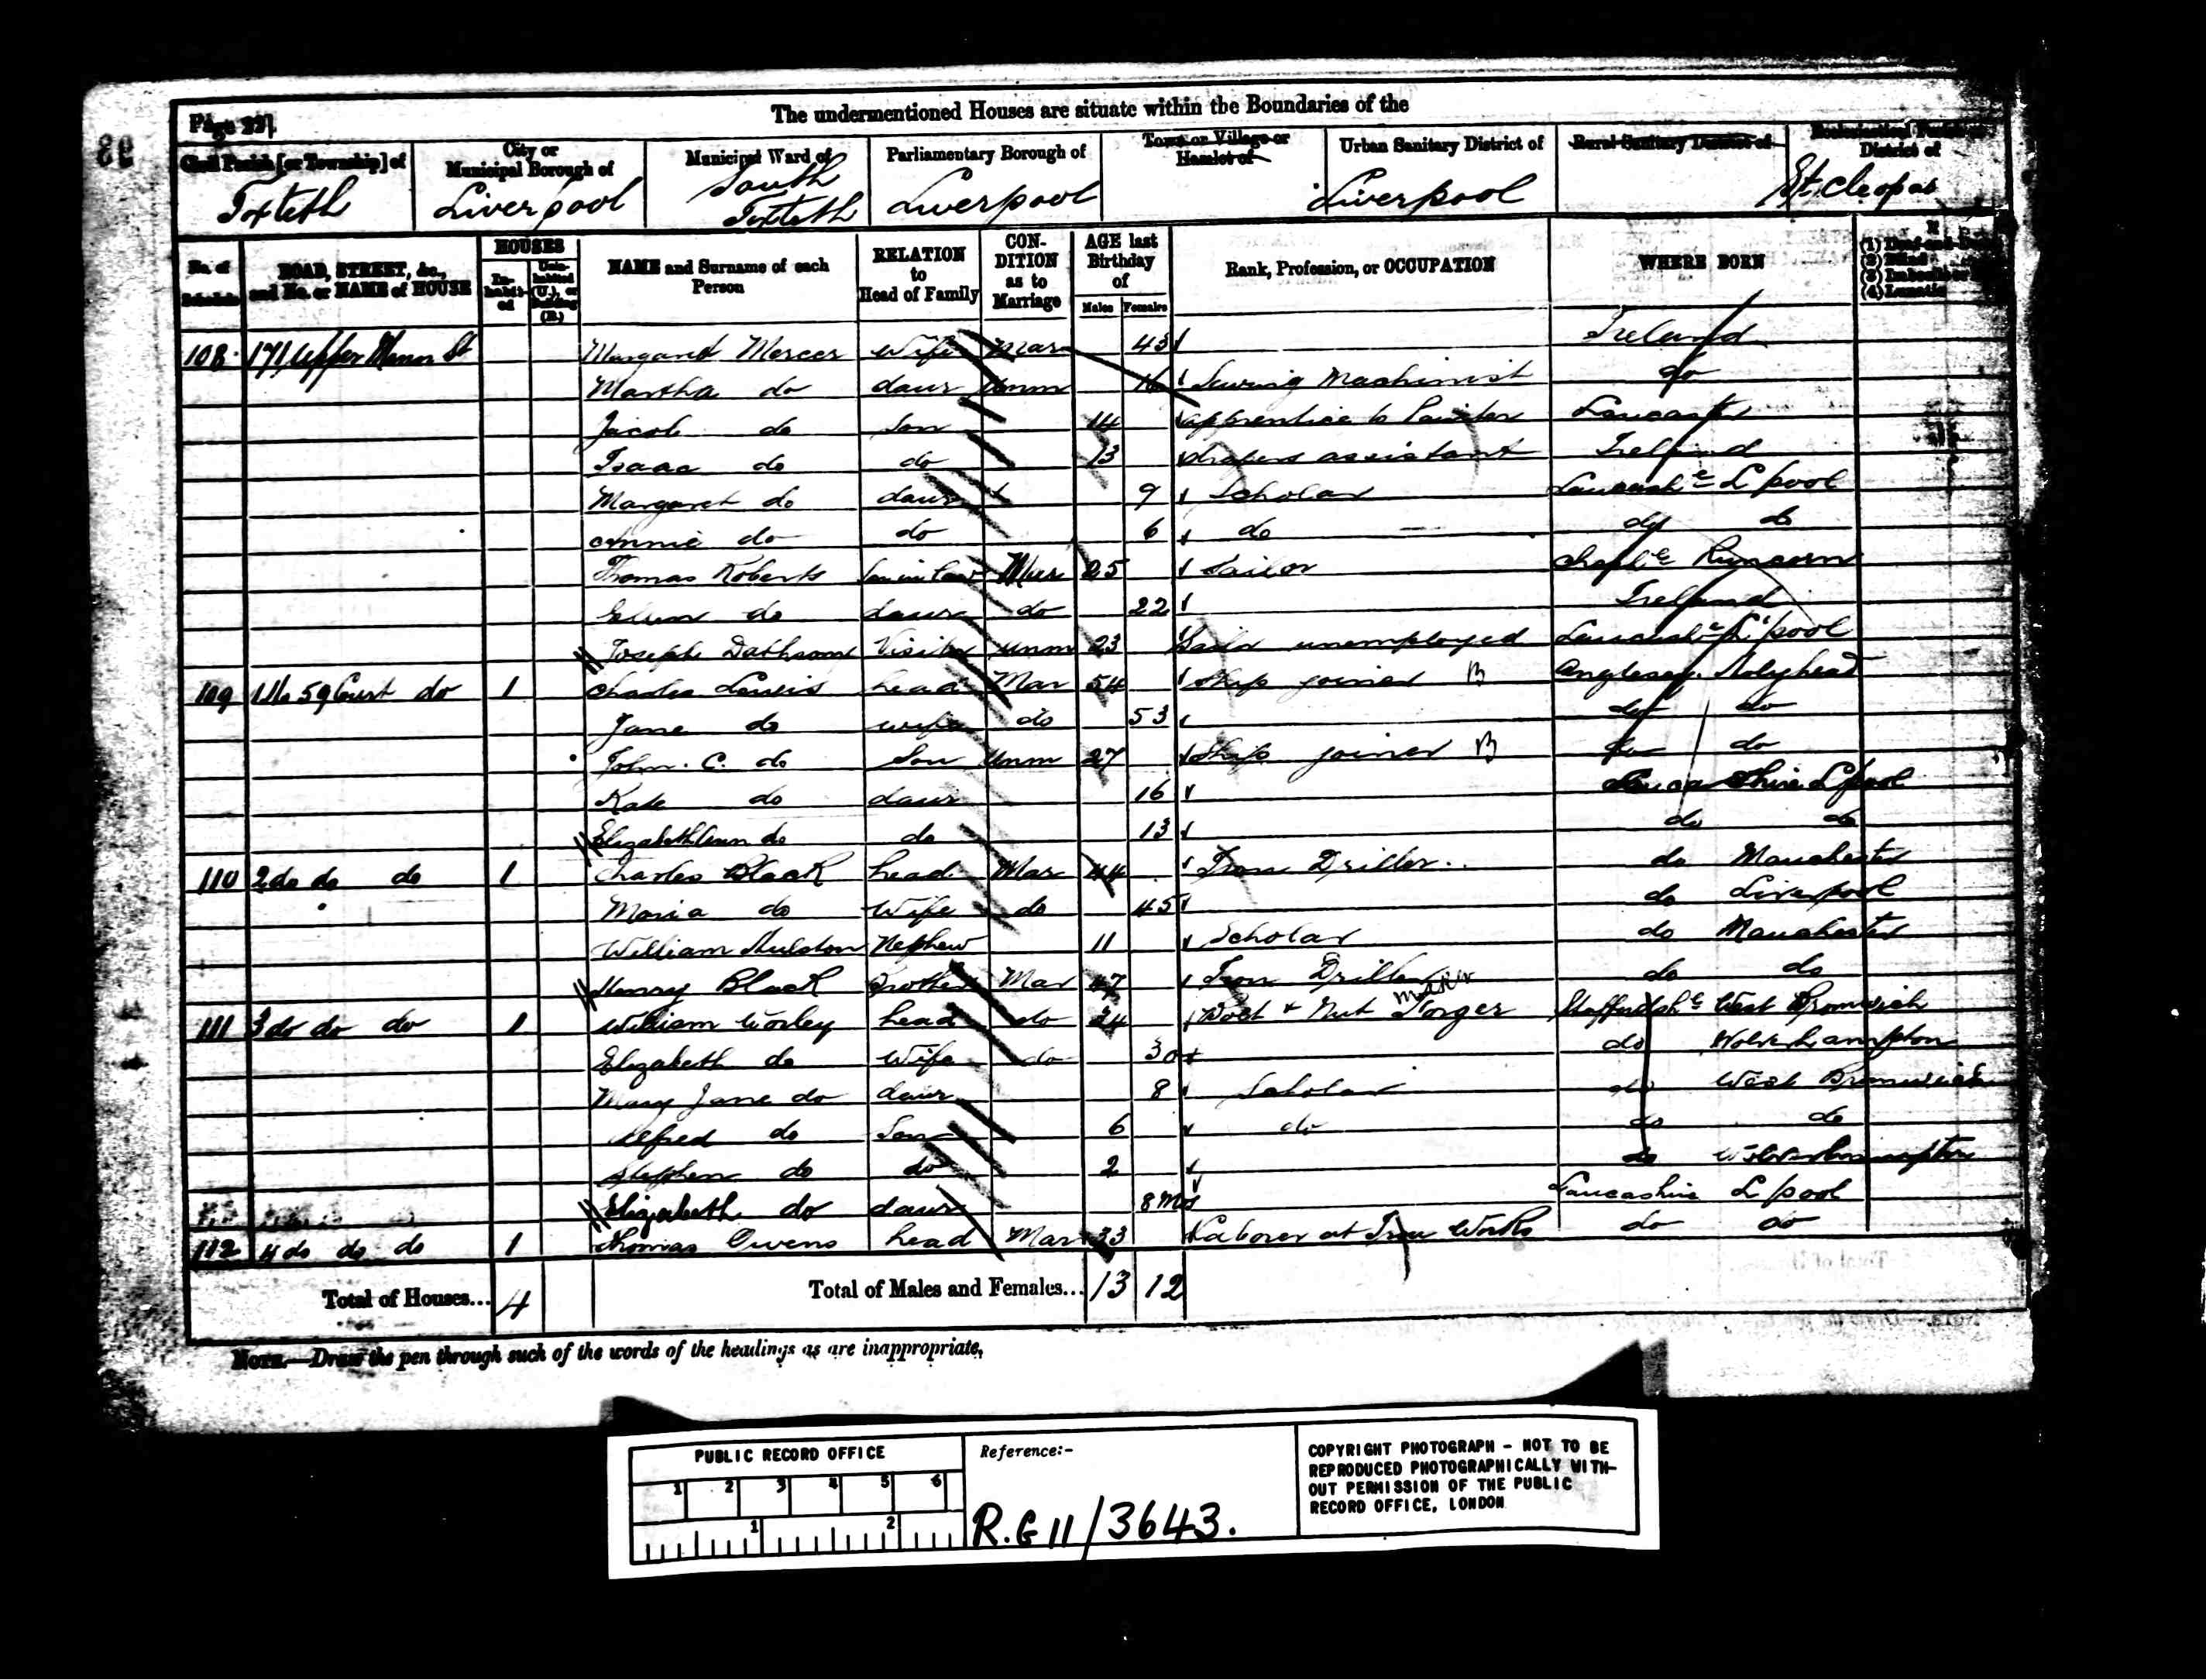 Page 27]
The undermentioned Houses are situate within the Boundaries of the
Civil Parish [or Township] of
City or Municipal Borough of
Municipal Ward of
Parliamentary Borough of
Town or Village or Hamlet of
Urban Sanitary District of
Rural Sanitary District of
Ecclesiastical Parish or District of
Toxteth
Liverpool
South Toxteth
Liverpool
Liverpool
St. Cleopas
No. of Schedule
ROAD, STREET, &c., and No. or NAME of HOUSE
HOUSES
Inhabited
Uninhabited (U.), or Building (B.)
NAME and Surname of each Person
RELATION to Head of Family
CONDITION as to Marriage
AGE last Birthday of
Males
Females
Rank, Profession, or OCCUPATION
WHERE BORN
(1) Deaf-and-Dumb
(2) Blind
(3) Imbecile or
(4) Lunatic
108 171 Upper Mann St Margaret Mercer Wife Mar 43 Ireland
Martha do daur Unm 16 Sewing Machinist do
Jacob do Son 14 apprentice to Lancaster
Isaac do do 13 drapers assistant Ireland
Margaret do daur 9 Scholar Lancashe L'pool
Annie do do 6 do do do
Thomas Roberts Son in law Mar 25 Sailor Runcorn
Ellen do daur do 22 Ireland
Joseph Visitor Unm 23 unemployed L'pool
109 1 Ho 59 Court do 1 Charles Lewis head Mar 54 Ship joiner B Anglesey. Holyhead
Jane do wife do 53 do do
John. C. do Son Unm 27 Ship joiner B do do
Kate do daur 16 Lancashire L'pool
Elizabeth Ann do do 13 do do
110 2 do do do 1 Charles Black head Mar 44 Iron Driller do Manchester
Maria do Wife do 45 do Liverpool
William Nephew 11 Scholar do Manchester
Henry Black Brother Mar 47 Iron Driller do do
111 3 do do do 1 William Worley head do 34 Bolt + Nut Forger Maker Staffordshe West Bromwich
Elizabeth do Wife do 30 do Wolverhampton
Mary Jane do daur 8 Scholar do West Bromwich
Alfred do Son 6 do do do
Stephen do do 2 do Wolverhampton
Elizabeth do daur 8 Mos Lancashire L'pool
112 4 do do do 1 Thomas Owens head Mar 33 Laborer at Iron Works do do
Total of Houses... 4
Total of Males and Females... 13 12
NOTE.—Draw the pen through such of the words of the headings as are inappropriate.
PUBLIC RECORD OFFICE
1 2 3 4 5 6
1 2
Reference:-
R.G 11/3643.
COPYRIGHT PHOTOGRAPH - NOT TO BE
REPRODUCED PHOTOGRAPHICALLY WITH-
OUT PERMISSION OF THE PUBLIC
RECORD OFFICE, LONDON